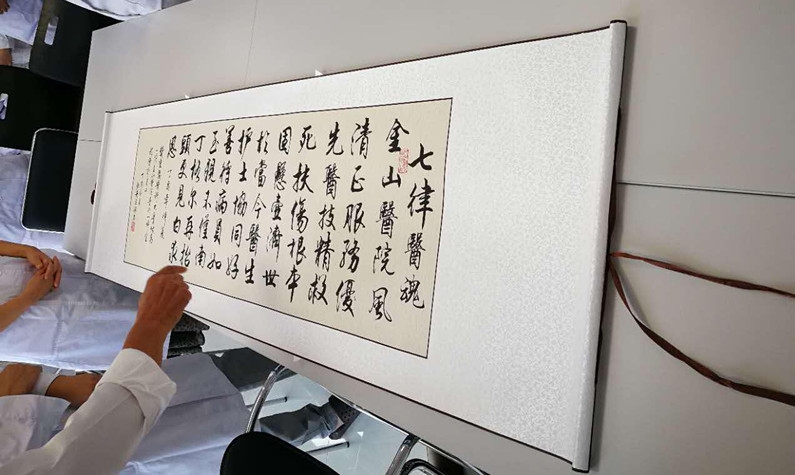 七律醫魂
金山醫院風
清正服務優
先醫技精救
死扶傷根本
固懸壺濟世
於當今醫生
护士協同好
善待病員如
至親不僅南
丁格尔再抬
頭又見白求
恩